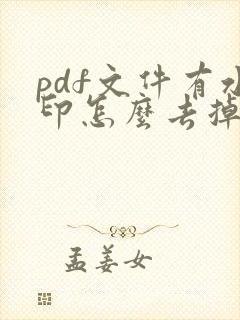 pdf文件有水
印怎麼去掉
孟姜女